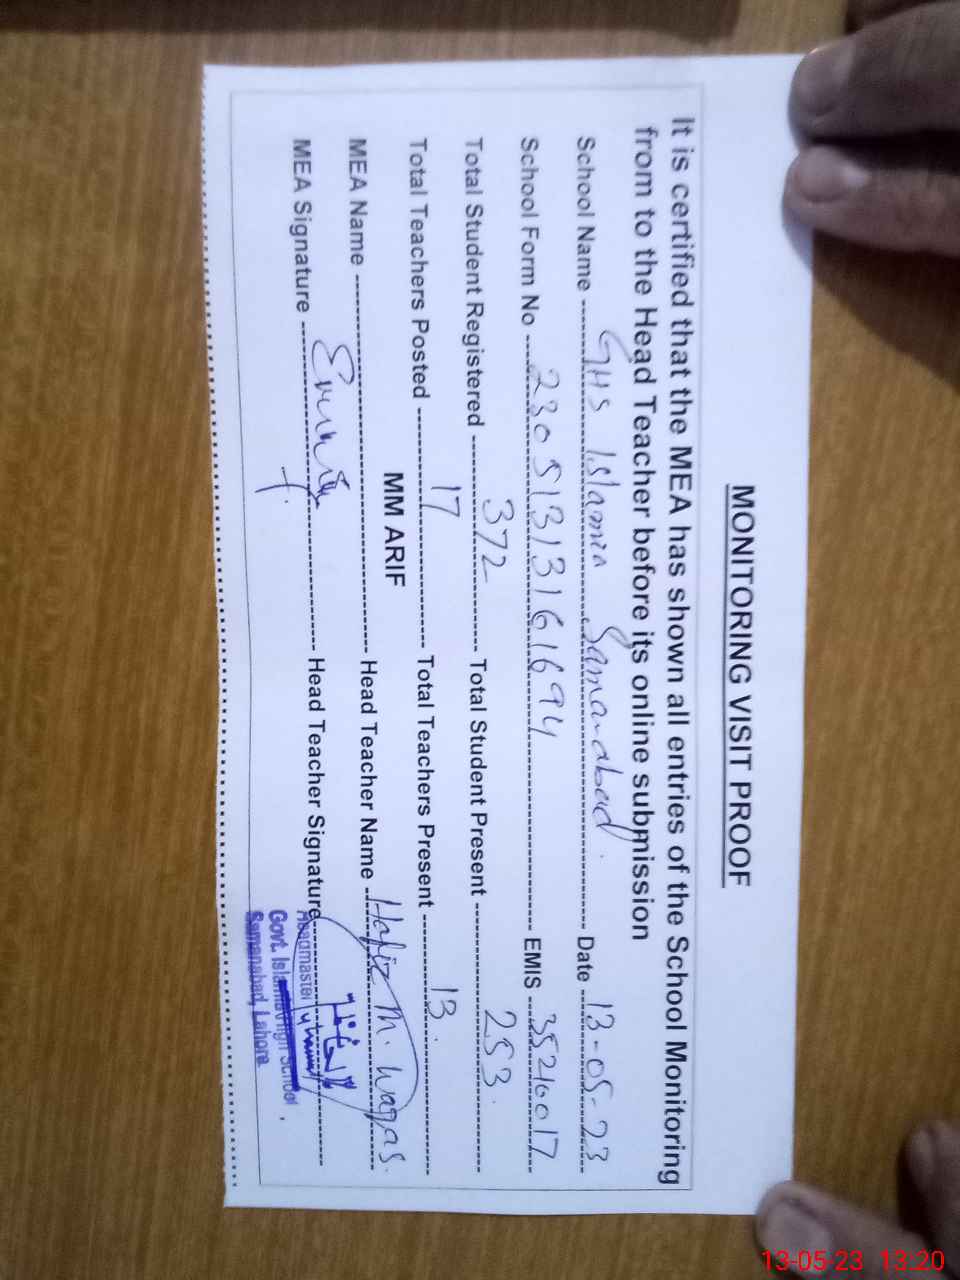 MONITORING VISIT PROOF
It is certified that the MEA has shown all entries of the School Monitoring
from to the Head Teacher before its online submission
School Name GHS Islamia Samanabad. Date 13-05-23
School Form No 23051313161694 EMIS 35210017
Total Student Registered 372 Total Student Present 253.
Total Teachers Posted 17 Total Teachers Present 13.
MEA Name MM ARIF Head Teacher Name Hafiz M. Waqas.
MEA Signature Head Teacher Signature
Headmaster
Govt. Islamia High School,
Samanabad, Lahore
13-05-23 13:20